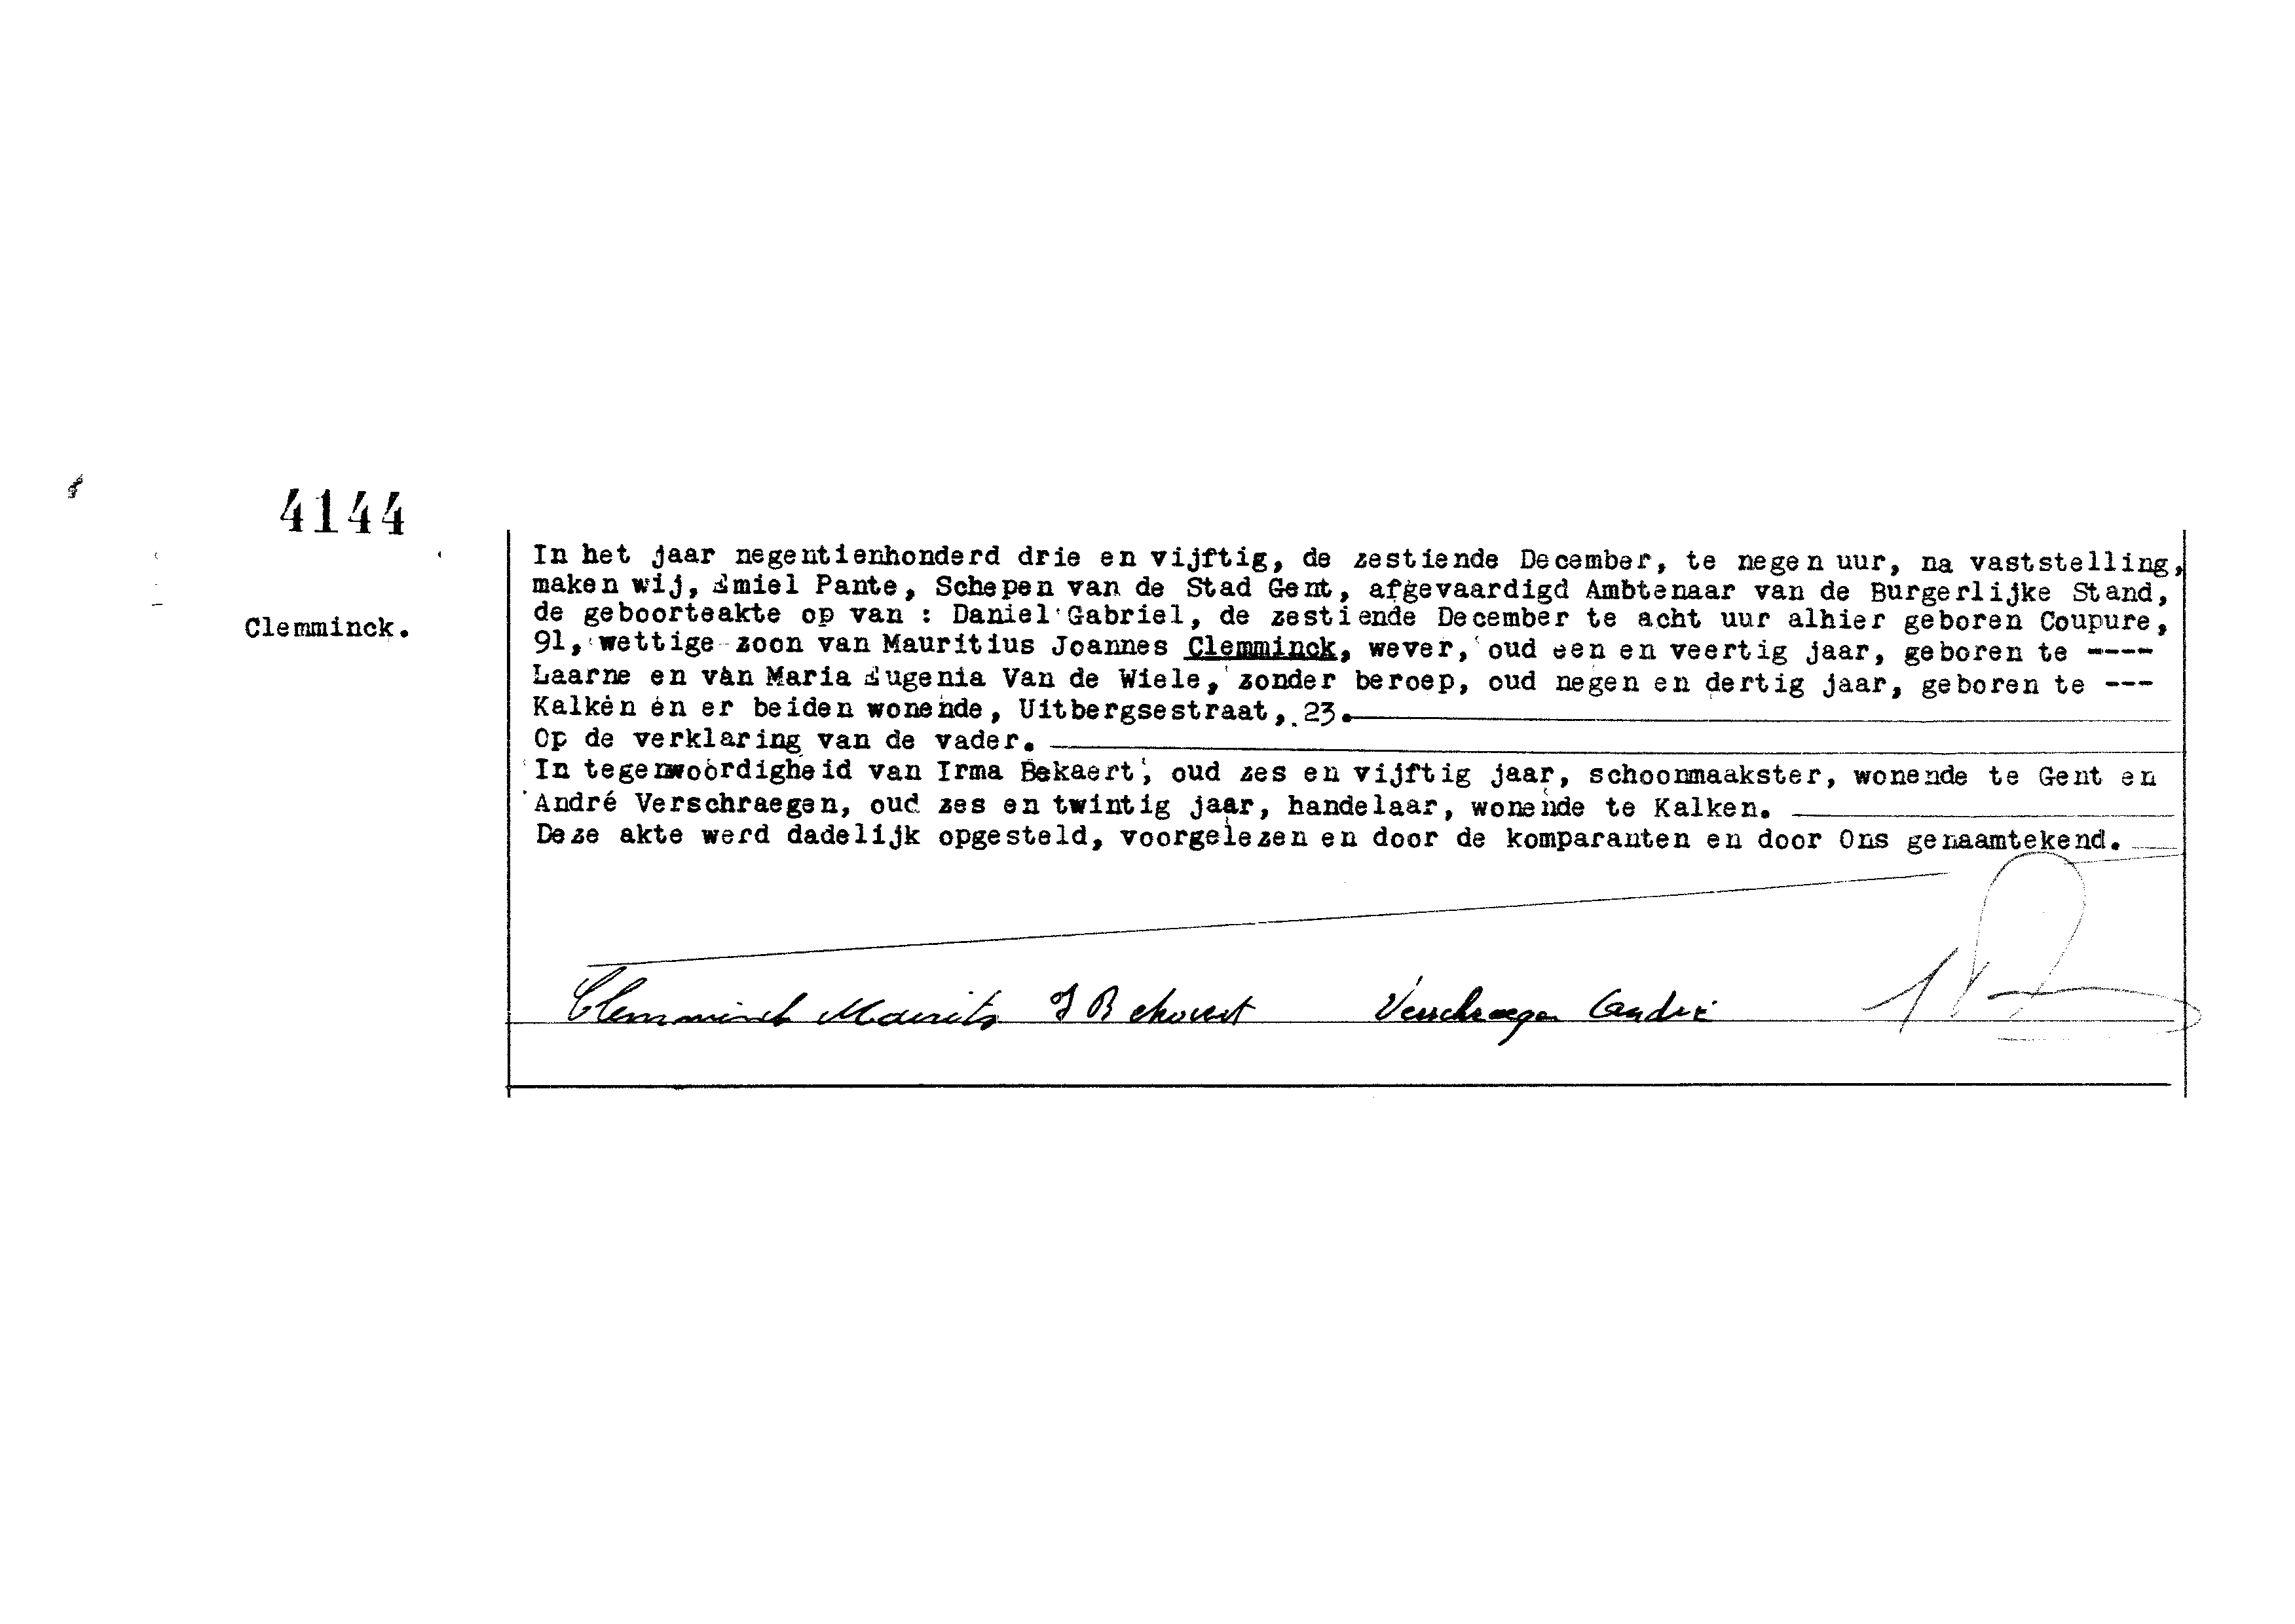 4144
Clemminck.
In het jaar negentienhonderd drie en vijftig, de zestiende December, te negen uur, na vaststelling,
maken wij, Emiel Pante, Schepen van de Stad Gent, afgevaardigd Ambtenaar van de Burgerlijke Stand,
de geboorteakte op van : Daniel Gabriel, de zestiende December te acht uur alhier geboren Coupure,
91, wettige zoon van Mauritius Joannes Clemminck, wever, oud een en veertig jaar, geboren te ----
Laarne en van Maria Eugenia Van de Wiele, zonder beroep, oud negen en dertig jaar, geboren te ---
Kalken en er beiden wonende, Uitbergsestraat, 23.
Op de verklaring van de vader.
In tegenwoordigheid van Irma Bekaert, oud zes en vijftig jaar, schoonmaakster, wonende te Gent en
André Verschraegen, oud zes en twintig jaar, handelaar, wonende te Kalken.
Deze akte werd dadelijk opgesteld, voorgelezen en door de komparanten en door Ons genaamtekend.
Clemminck Maurits I Bekaert Verschraegen André